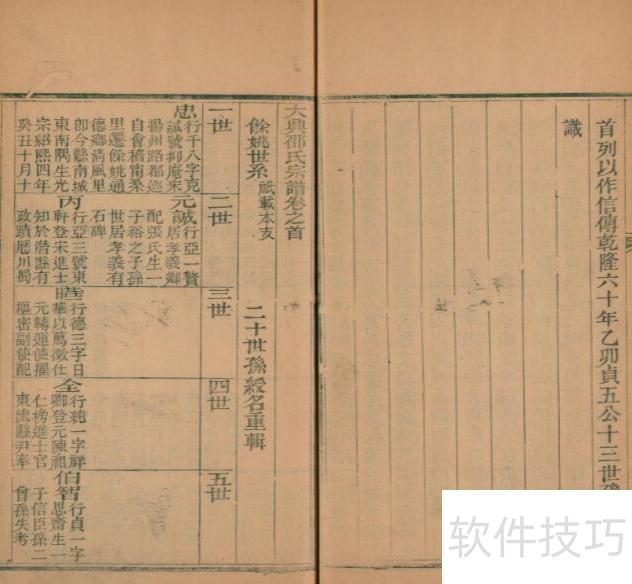 首列以作信傳乾隆六十年乙卯貞五公十三世孫
識
大興邵氏宗譜卷之首
餘姚世系祇載本支
二十世孫綬名重輯
一世
二世
三世
四世
五世
忠
行千八字克
誠號抑庵宋
揚州路都巡
自會稽甯桑
里遷餘姚通
德鄉清風里
即今縣南城
東南隅生光
宗紹熙四年
癸丑十月十
元誠
行亞一贅
居孝義鄉
配張氏生一
子裕之子孫
世居孝義有
石碑
丙
行亞三號東
軒登宋進士
知於潛縣有
政蹟歷川蜀
行德三字日
華以薦徵仕
元轉運使擢
樞密副使配
全
行純一字祥
卿登元陳祖
仁榜進士官
東流縣尹奉
伯智
行貞一字
思齋生一
子信臣孫二
曾孫失考
软件技巧